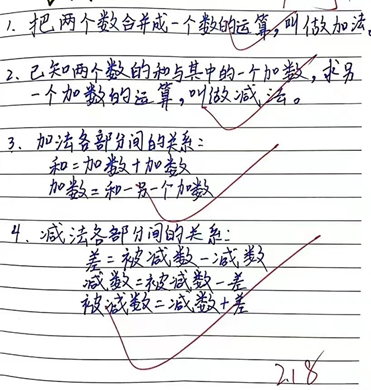 1. 把两个数合并成一个数的运算,叫做加法。
2. 已知两个数的和与其中的一个加数,求另
一个加数的运算,叫做减法。
3. 加法各部分间的关系:
和=加数+加数
加数=和-另一个加数
4. 减法各部分间的关系:
差=被减数-减数
减数=被减数-差
被减数=减数+差
2.18